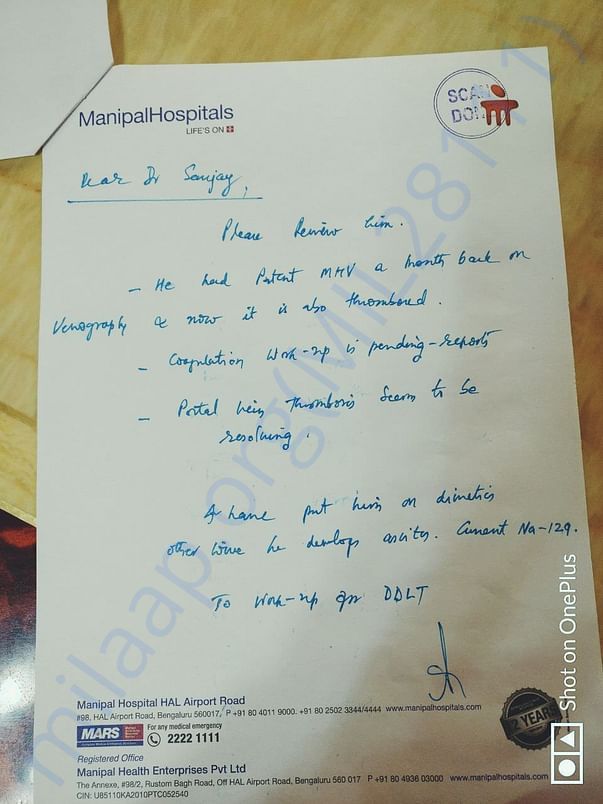 ManipalHospitals
LIFE'S ON
SCAN
DONE
Dear Dr Sanjay,
Please Review him.
– He had Patent MHV a month back on
Venography & now it is also thrombosed.
– Coagulation work-up is pending-reports
– Portal vein thrombosis seem to be
resolving.
I have put him on diuretics
other wise he develops ascites. Current Na-129.
To work-up for DDLT
Manipal Hospital HAL Airport Road
#98, HAL Airport Road, Bengaluru 560017, P +91 80 4011 9000. +91 80 2502 3344/4444 www.manipalhospitals.com
MARS
For any medical emergency
2222 1111
Registered Office
Manipal Health Enterprises Pvt Ltd
The Annexe, #98/2, Rustom Bagh Road, Off HAL Airport Road, Bengaluru 560 017 P +91 80 4936 03000 www.manipalhospitals.com
CIN: U85110KA2010PTC052540
YEARS
Shot on OnePlus
milaap.org(MIL281